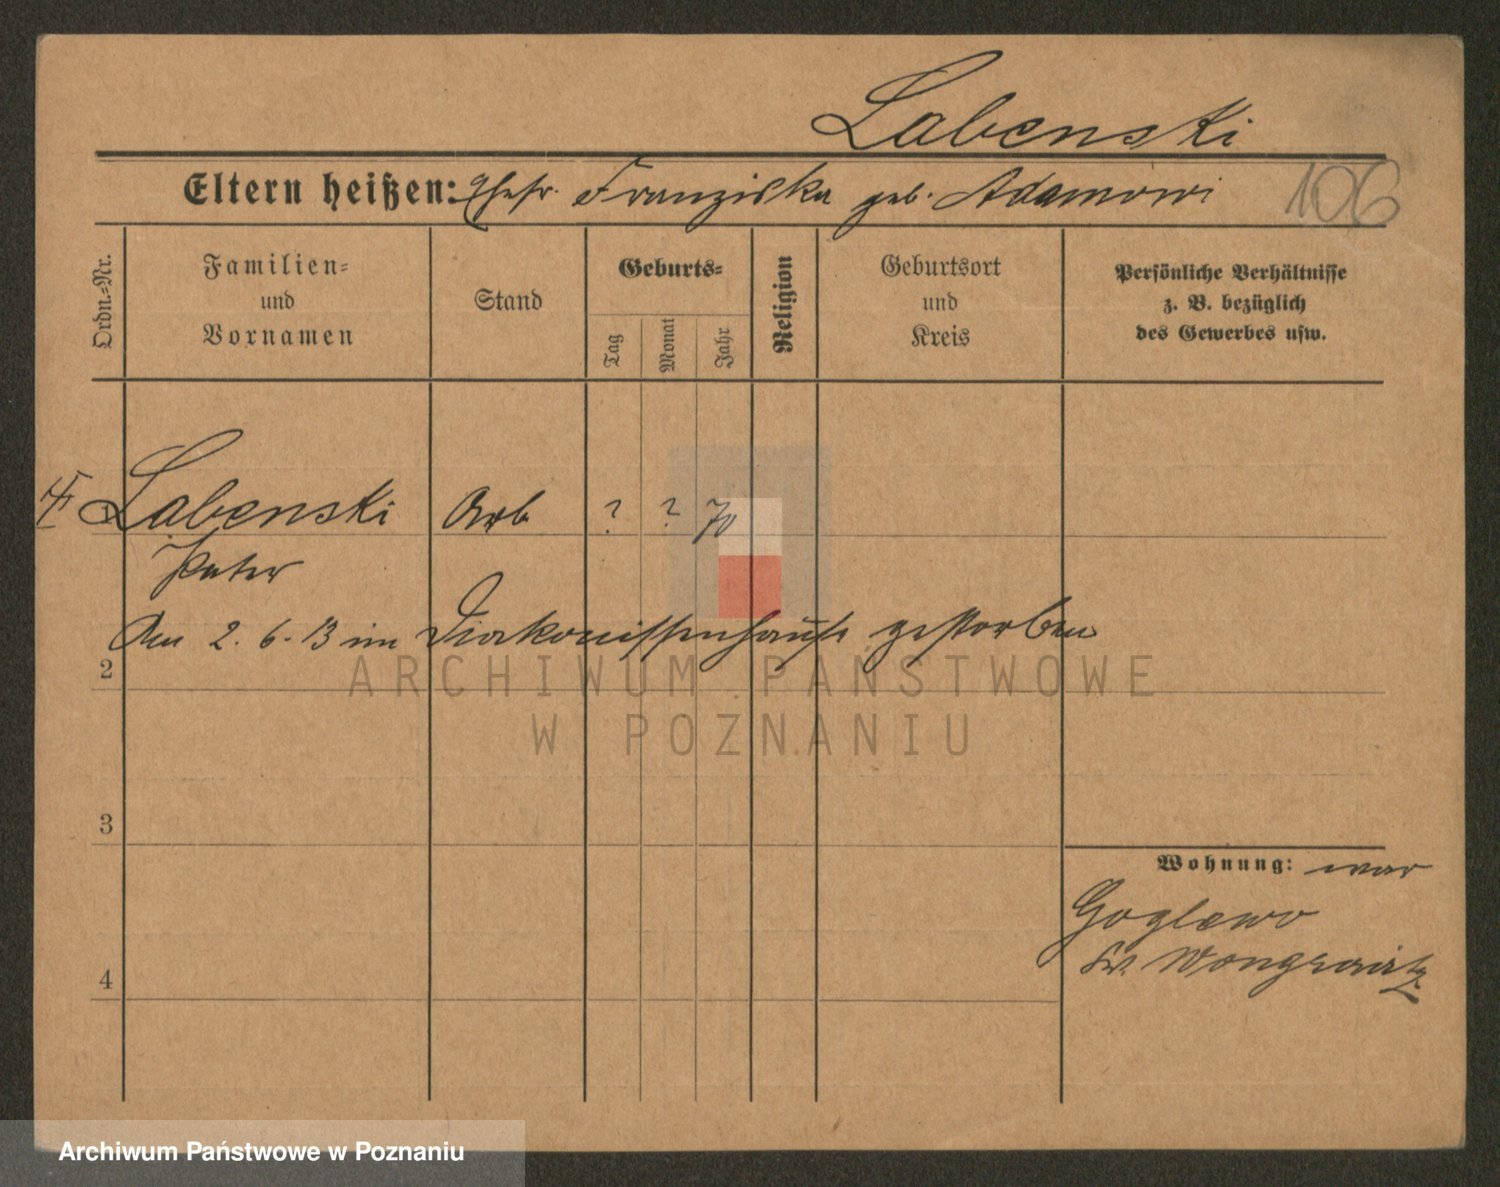 Labenski
Eltern heißen: Ehefr. Franziska geb. Adamowi
106
Ordn.-Nr.
Familien-
und
Vornamen
Stand
Geburts-
Tag
Monat
Jahr
Religion
Geburtsort
und
Kreis
Persönliche Verhältnisse
z. B. bezüglich
des Gewerbes usw.
Labenski Arb ? ? 70
Peter
Am 2. 6. 13 im Diakonissenhause gestorben
2
3
4
Wohnung: war
Goglewo
Kr. Wongrowitz
ARCHIWUM PAŃSTWOWE
W POZNANIU
Archiwum Państwowe w Poznaniu